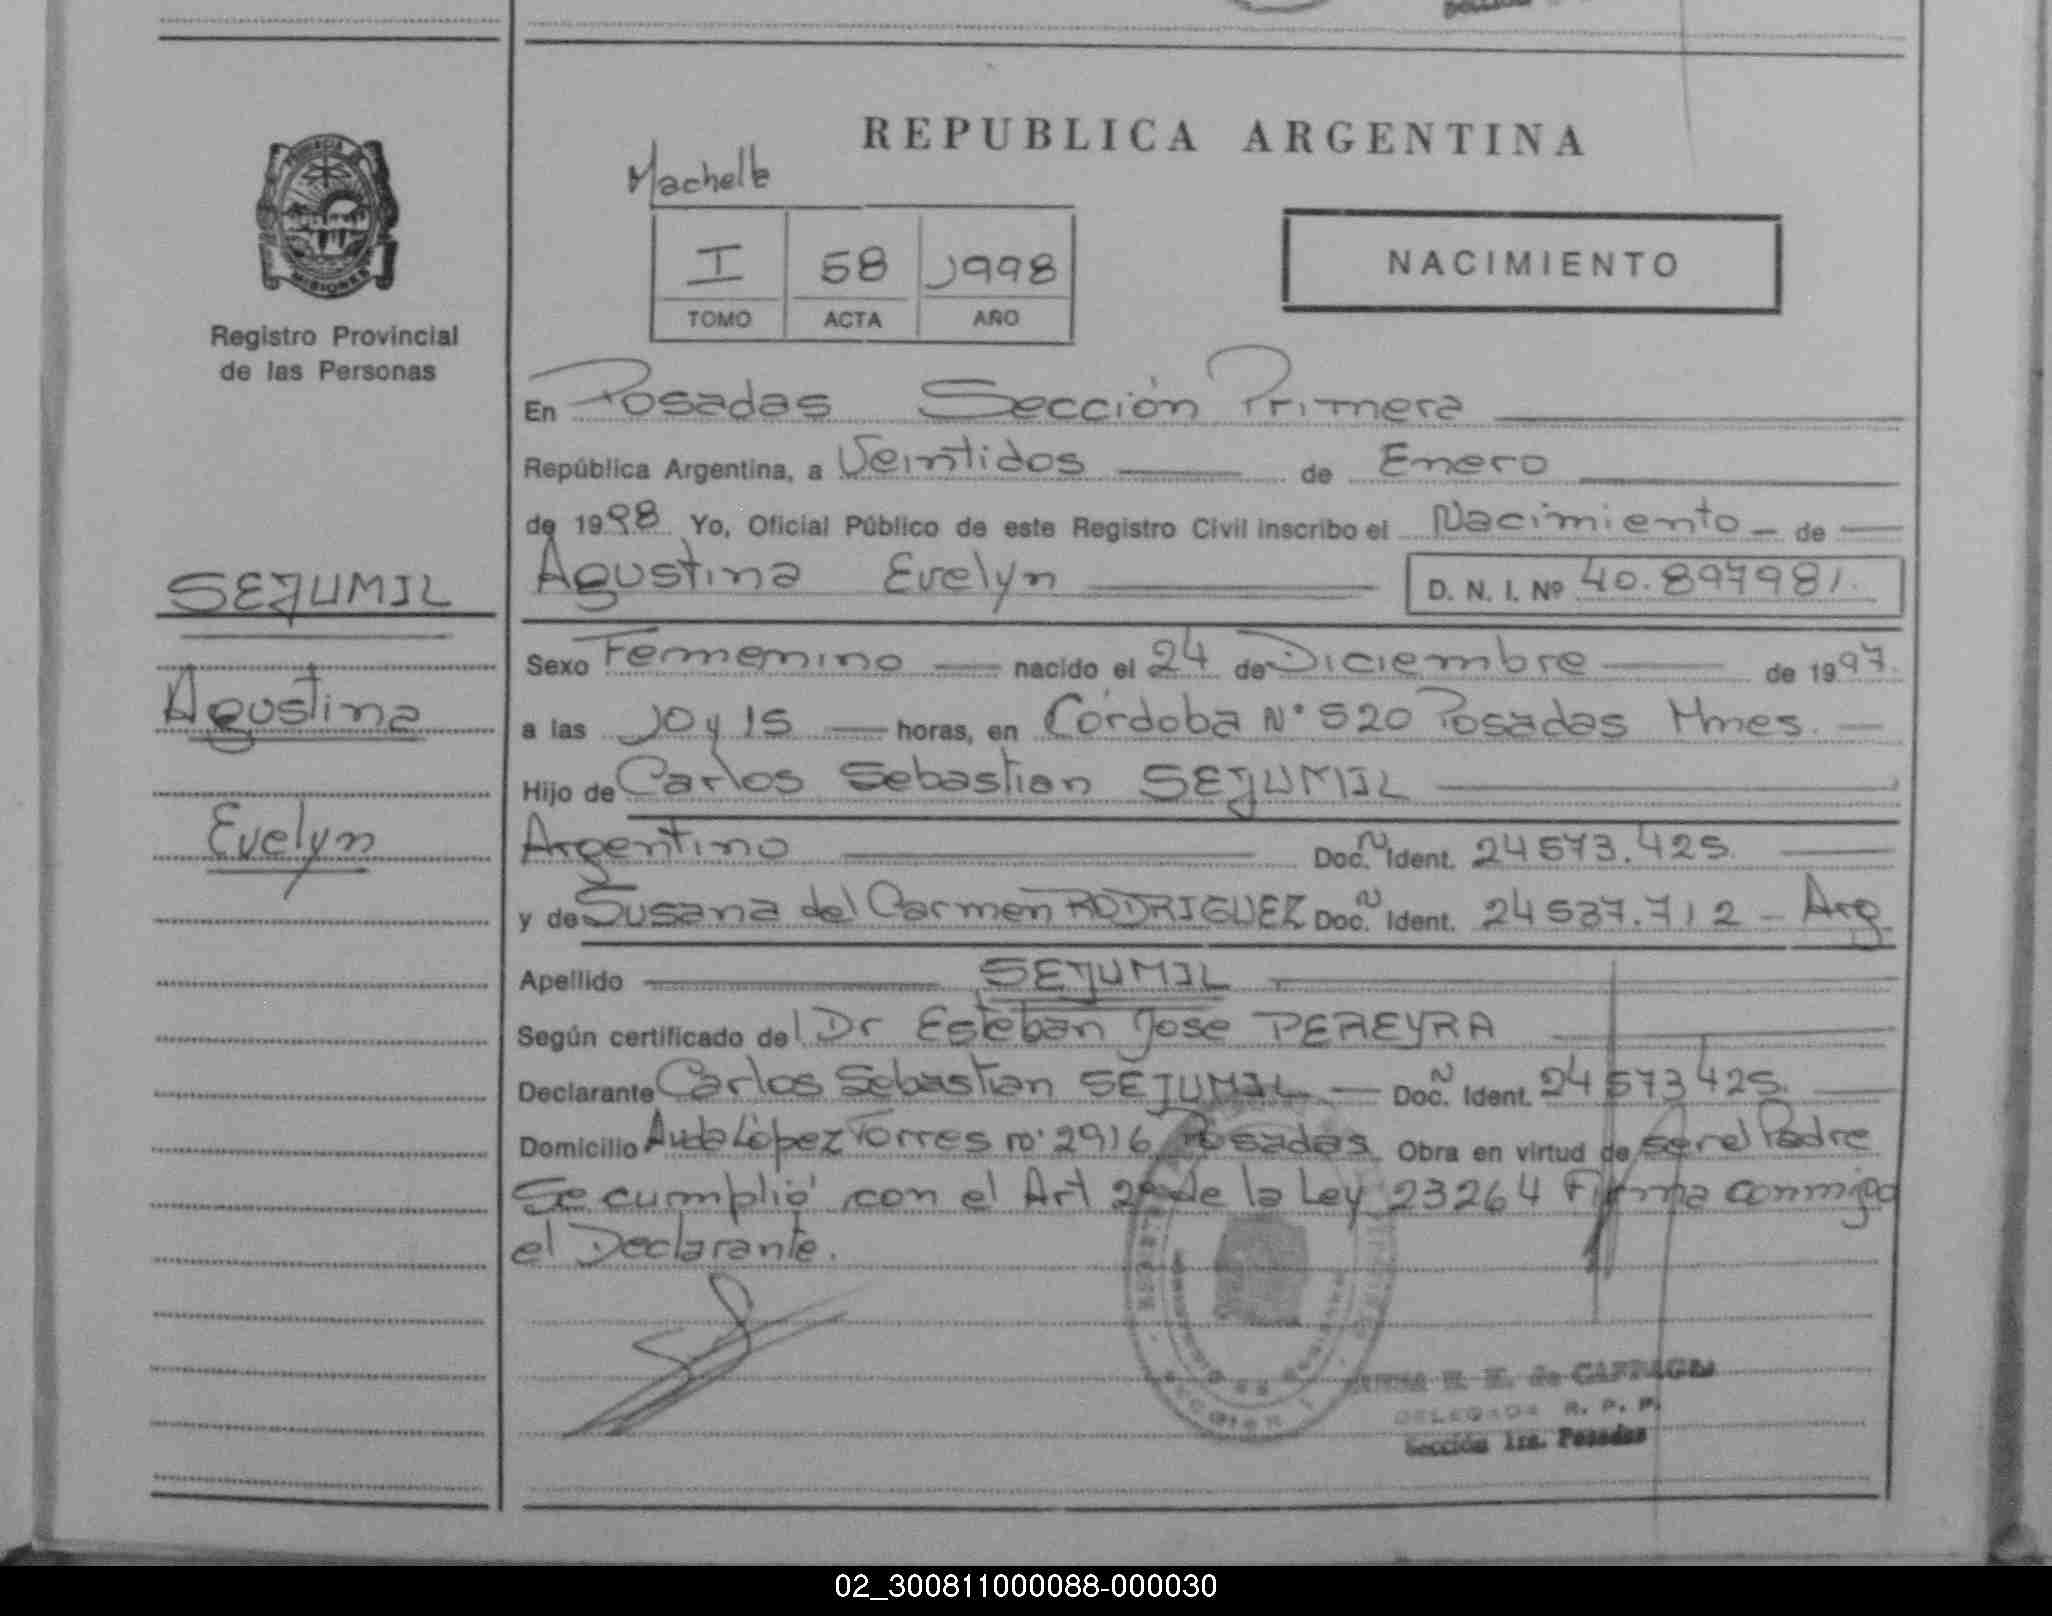 REPUBLICA ARGENTINA
PROVINCIA DE
MISIONES
Registro Provincial
de las Personas
I 58 1998
TOMO ACTA AÑO
NACIMIENTO
En Posadas Sección Primera
República Argentina, a Veintidos de Enero
de 1998 Yo, Oficial Público de este Registro Civil inscribo el Nacimiento de
SEJUMIL
Agustina Evelyn D. N. I. Nº 40.897981.
Sexo Femenino nacido el 24 de Diciembre de 1997.
Agustina
a las 10 y 15 horas, en Córdoba N° 520 Posadas Mnes.
Hijo de Carlos Sebastian SEJUMIL
Evelyn
Argentino Doc. N Ident. 24573.425.
y de Susana del Carmen RODRIGUEZ Doc. N Ident. 24537.712 - Arg
Apellido SEJUMIL
Según certificado del Dr Esteban Jose PEREYRA
Declarante Carlos Sebastian SEJUMIL Doc. N Ident. 24573425.
Domicilio Avda López Torres n° 2916 Posadas Obra en virtud de ser el Padre
Se cumplió con el Art 2° de la Ley 23264 Firma conmigo
el Declarante.
DELEGADA R. P. P.
Sección 1ra. Posadas
02_300811000088-000030